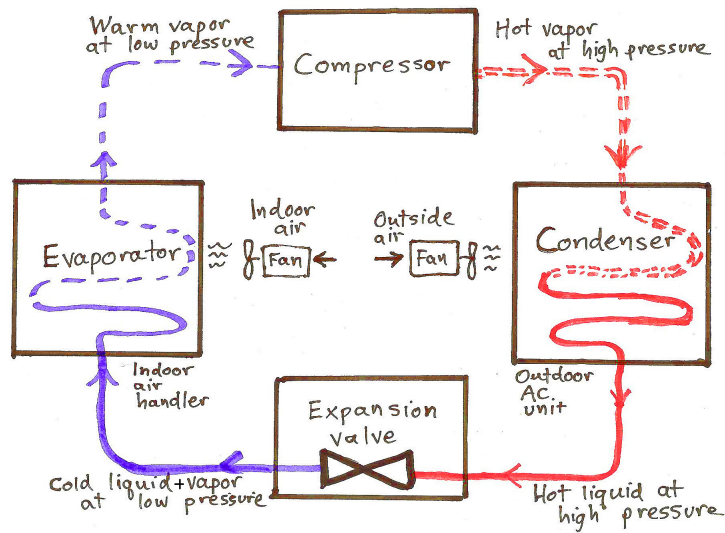 Warm vapor
at low pressure
Compressor
Hot vapor
at high pressure
Evaporator
Indoor
air
Fan
Outside
air
Fan
Condenser
Indoor
air
handler
Expansion
valve
Outdoor
A.C.
unit
Cold liquid+vapor
at low pressure
Hot liquid at
high pressure